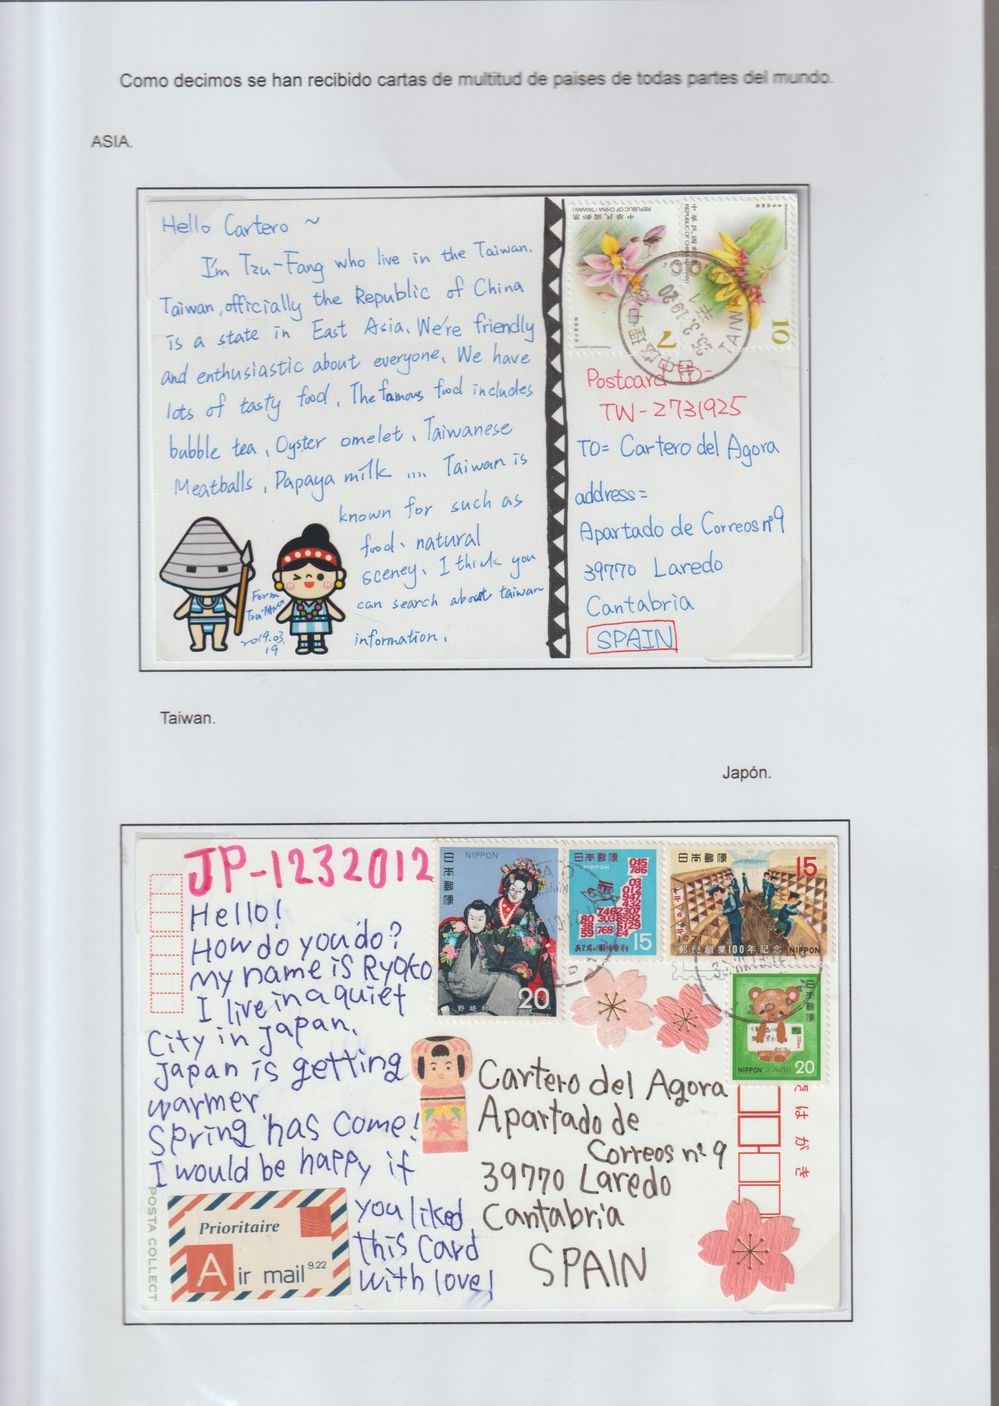 Como decimos se han recibido cartas de multitud de paises de todas partes del mundo.
ASIA.
Hello Cartero ~
I'm Tzu-Fang who live in the Taiwan.
Taiwan, officially the Republic of China
is a state in East Asia. We're friendly
and enthusiastic about everyone. We have
lots of tasty food. The famous food includes
bubble tea、Oyster omelet、Taiwanese
Meatballs、Papaya milk .... Taiwan is
known for such as
food、natural
sceney. I think you
can search about taiwan
information.
Form
Tzu-Fang
2019.03.
19
中華民國郵票
REPUBLIC OF CHINA (TAIWAN)
7
中華民國郵票
REPUBLIC OF CHINA (TAIWAN)
10
TAIWAN
25.3.19.20
Postcard ID=
TW-2731925
TO= Cartero del Agora
address=
Apartado de Correos nº9
39770 Laredo
Cantabria
SPAIN
Taiwan.
Japón.
JP-1232012
Hello!
How do you do?
My name is Ryoko
I live in a quiet
City in Japan.
Japan is getting
warmer.
Spring has come!
I would be happy if
you liked
this Card
with love!
POSTA COLLECT
Prioritaire
Air mail 9.22
日本郵便
NIPPON
20
野崎村
日本郵便
NIPPON
15
日本郵便
15
郵便創業100年記念 NIPPON
日本郵便
NIPPON
20
Cartero del Agora
Apartado de
Correos nº 9
39770 Laredo
Cantabria
SPAIN
はがき